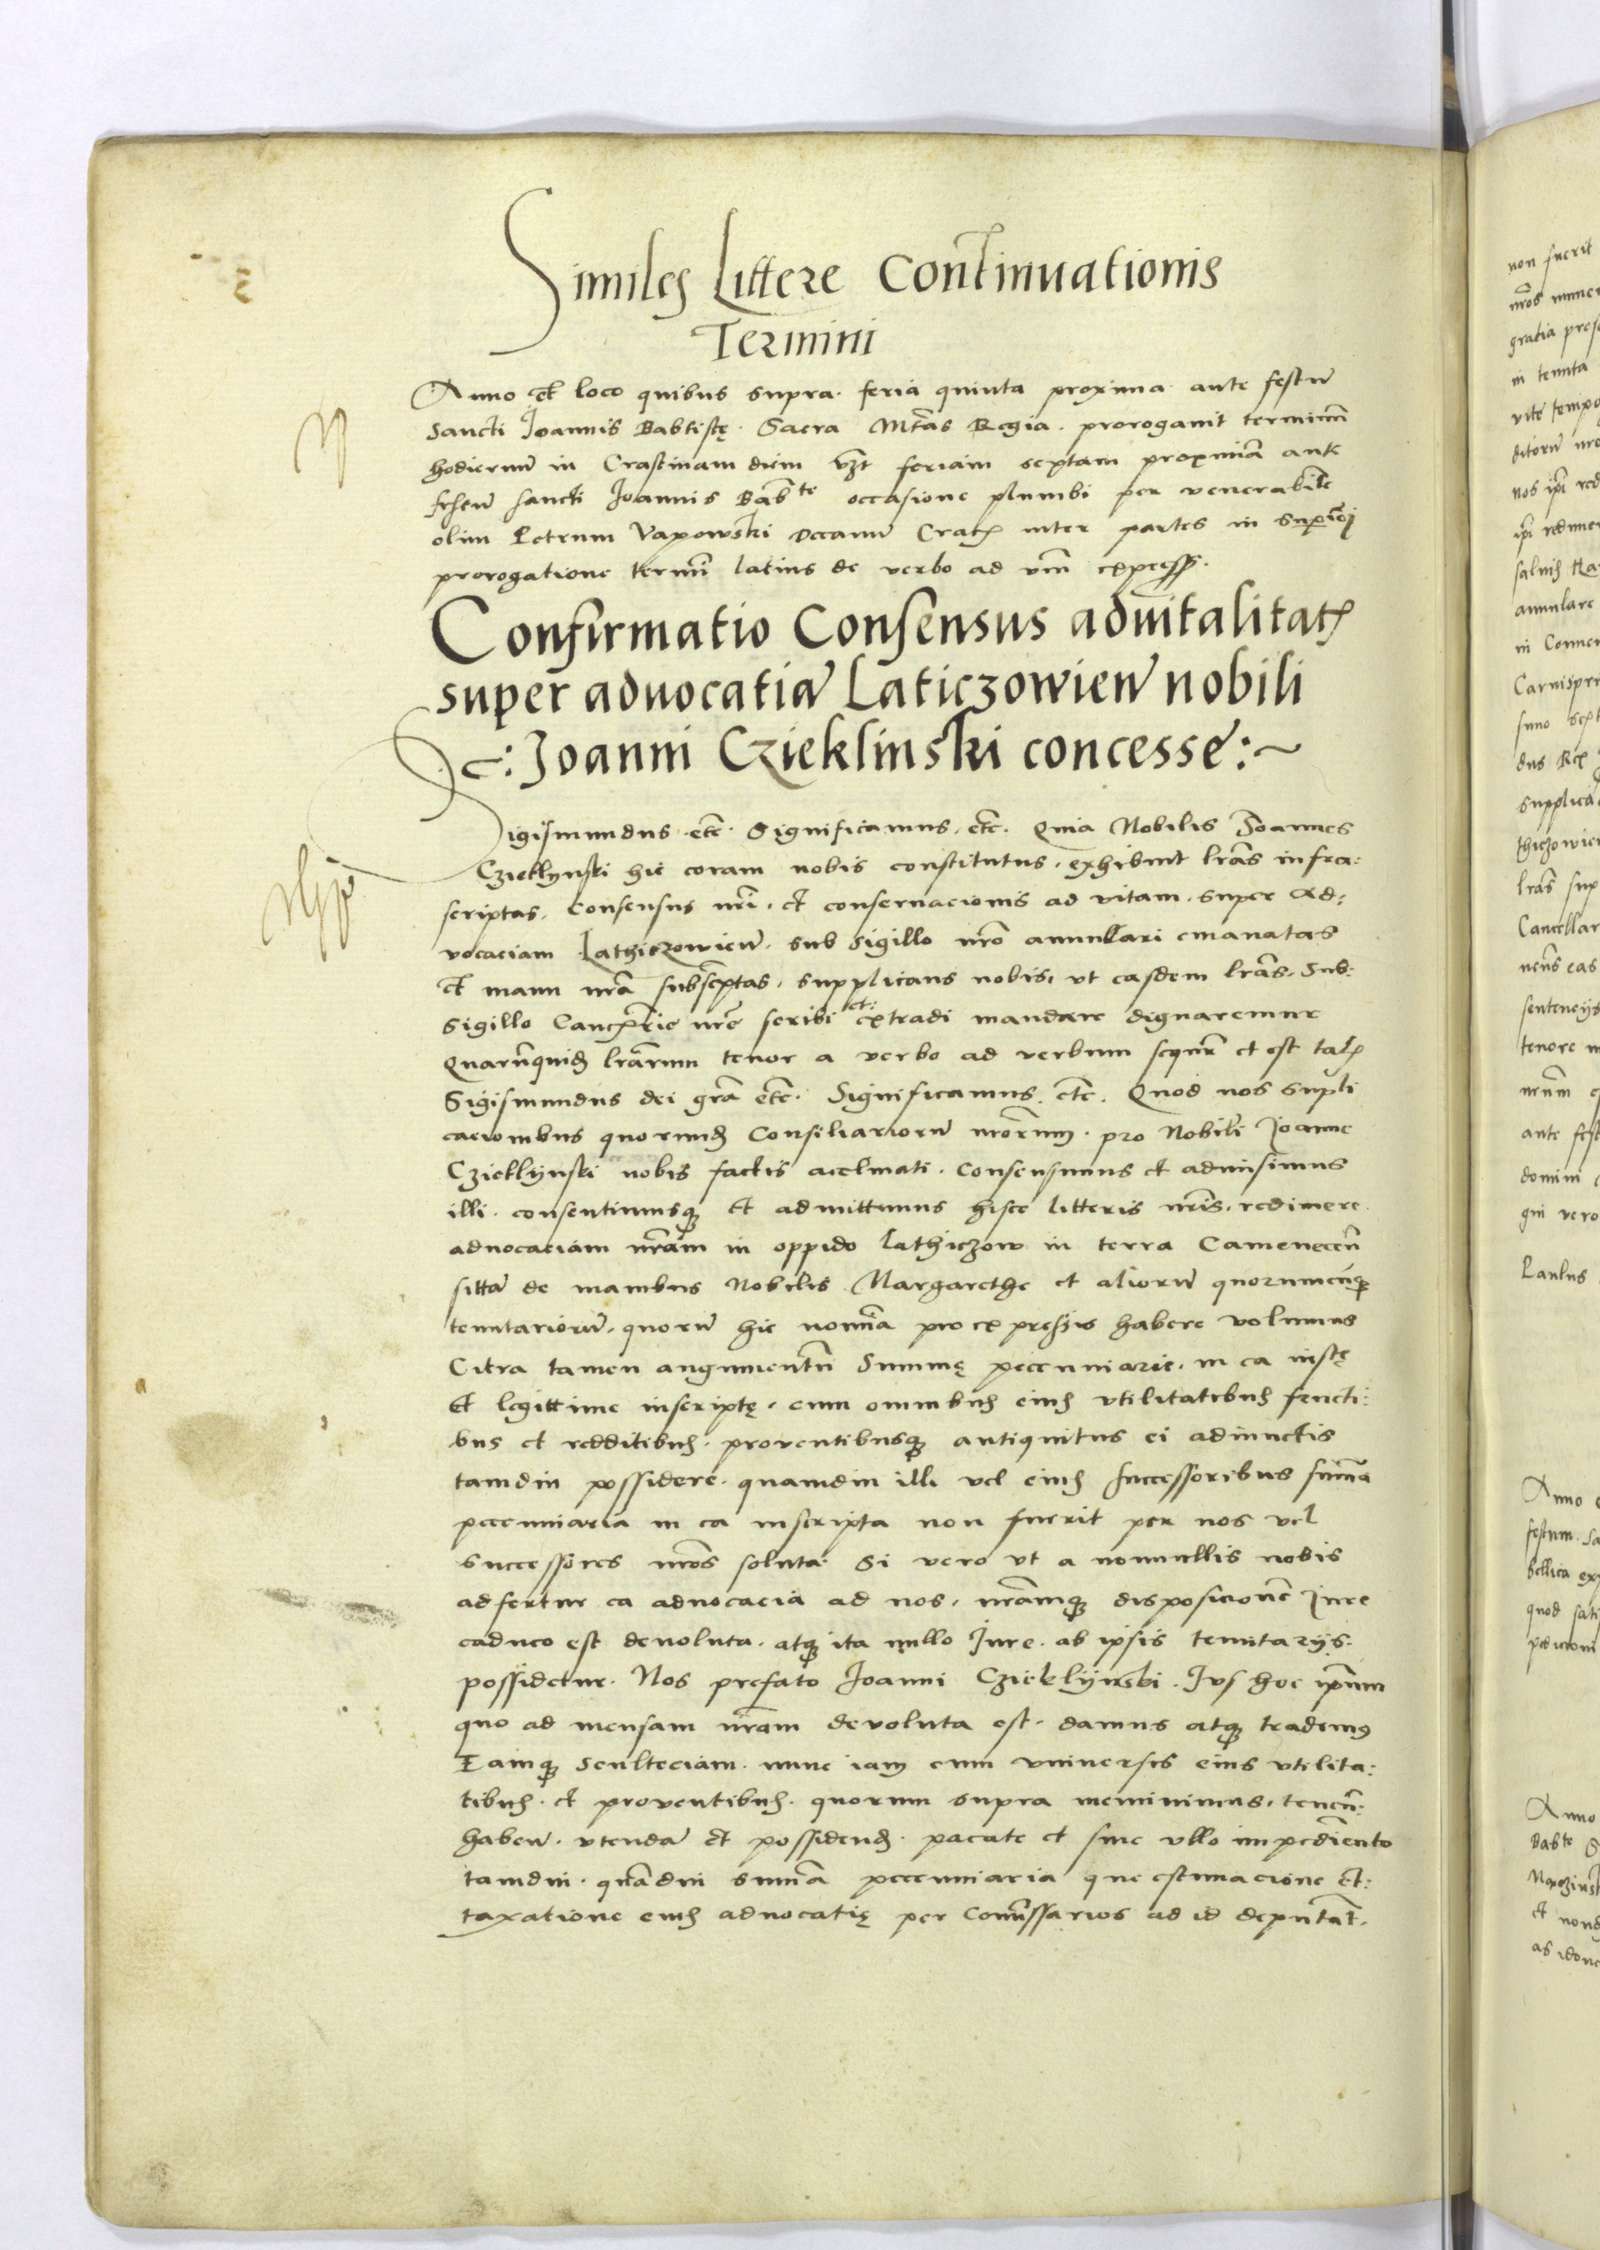 Similes Littere Continuationis
Termini
Anno et loco quibus supra. feria quinta proxima ante festu̅
Sancti Joannis Babtistę. Sacra Mtas Regia. prorogavit terminu̅
hodiernu̅ in Crastinam diem vzt feriam sextam proximā ante
festu̅ sancti Joannis Babte occasione plumbi per venerabile̅
olim Petrum Vapowski Decanu̅ Crac̅ inter partes in superiori
prorogatione termi̅ latius de verbo ad vm̅ express.
Confirmatio Consensus aduitalitat̅
super aduocatia̅ Laticzowien̅ nobili
Joanni Czieklinski concesse:~
Sigismundus etc̅. Significamus. etc̅. Quia Nobilis Joannes
Czieklynski hic coram nobis constitutus. exhibuit lr̅as infra:
scriptas. Consensus nr̅i. et conseruacionis ad vitam. super Ad:
vocaciam Lathiczowien̅. sub sigillo nr̅o annullari emanatas
et manu nr̅a subsc̅ptas. supplicans nobis, ut easdem lr̅as. Sub:
sigillo Canc̅rie nr̅e scribi et: extradi mandare dignaremur
Quarumquid̅ lr̅arum tenor a verbo ad verbum sequitr̅ et est talis
Sigismundus dei gr̅a etc̅. Significamus. etc̅. Quod nos supli
cacionibus quorund̅ Consiliarioru̅ nr̅orum. pro Nobili Joanne
Czieklynski nobis factis acclinati. consensimus et admisimus
illi. consentimusq̅ Et admittimus hisce litteris nr̅is. redimere
aduocaciam nr̅am in oppido Lathiczow in terra Camenecen̅
sitta̅ de manibus Nobilis Margarethe et alioru̅ quorumcu̅q̅
tenutarioru̅. quoru̅ hic nomi̅a pro expressis habere volumus
Citra tamen augumentu̅ Summę peccuniarie. in ea iustę
Et legittime inscriptę. cum omnibus eius vtilitatibus fructi:
bus et redditibus. proventibusq̅ antiquitus ei adiunctis
tamdiu possidere. quamdiu illi vel eius successoribus sum̅a
peccuniaria in ea inscripta non fuerit per nos vel
successores nr̅os soluta. Si vero ut a nonnullis nobis
adfertur ea aduocacia ad nos. nr̅amq̅ disposicione̅ Jure
caduco est deuoluta. atq̅ ita nullo Jure. ab ipsis tenutarijs.
possidetur. Nos prefato Joanni Czieklynski. Jus hoc ip̅um
quo ad mensam nr̅am devoluta est. damus atq̅ trademus
Eamq̅ Sculteciam. nunc iam cum vniversis eius vtilita:
tibus. et proventibus. quorum supra meminimus. tenen̅:
haben̅. vtenda̅ et possidend̅. pacate et sine vllo impedie̅nto
tamdiu. qua̅diu sum̅a peccuniaria que estimacione et:
taxatione eius aduocatię per Com̅issarios ad id deputat̅.
non fuerit
nr̅os
gratia
in tenuta
vite tempo
ditoru̅
salvis
annulare
in
supplica
thiczowien
lr̅as sup
Cancellar
sentencijs
tenore
ante fest
domini
qui vero
Paulus
Anno
festum. Sa
bellica
quod sati
Anno
Babte
et